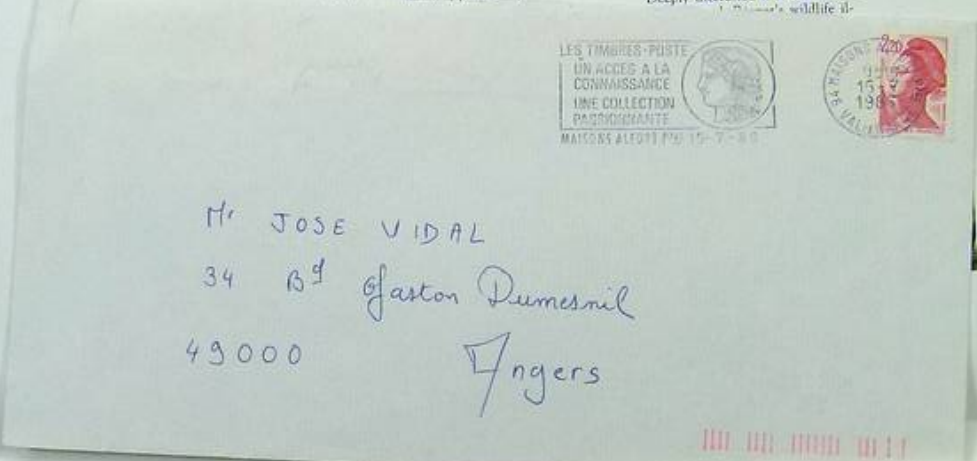 wildlife
LES TIMBRES-POSTE
UN ACCES A LA
CONNAISSANCE
UNE COLLECTION
PASSIONNANTE
MAISONS ALFORT 15-7-
2,20
94 MAISONS
15
Mr JOSE VIDAL
34 Bd Gaston Dumesnil
49000 Angers